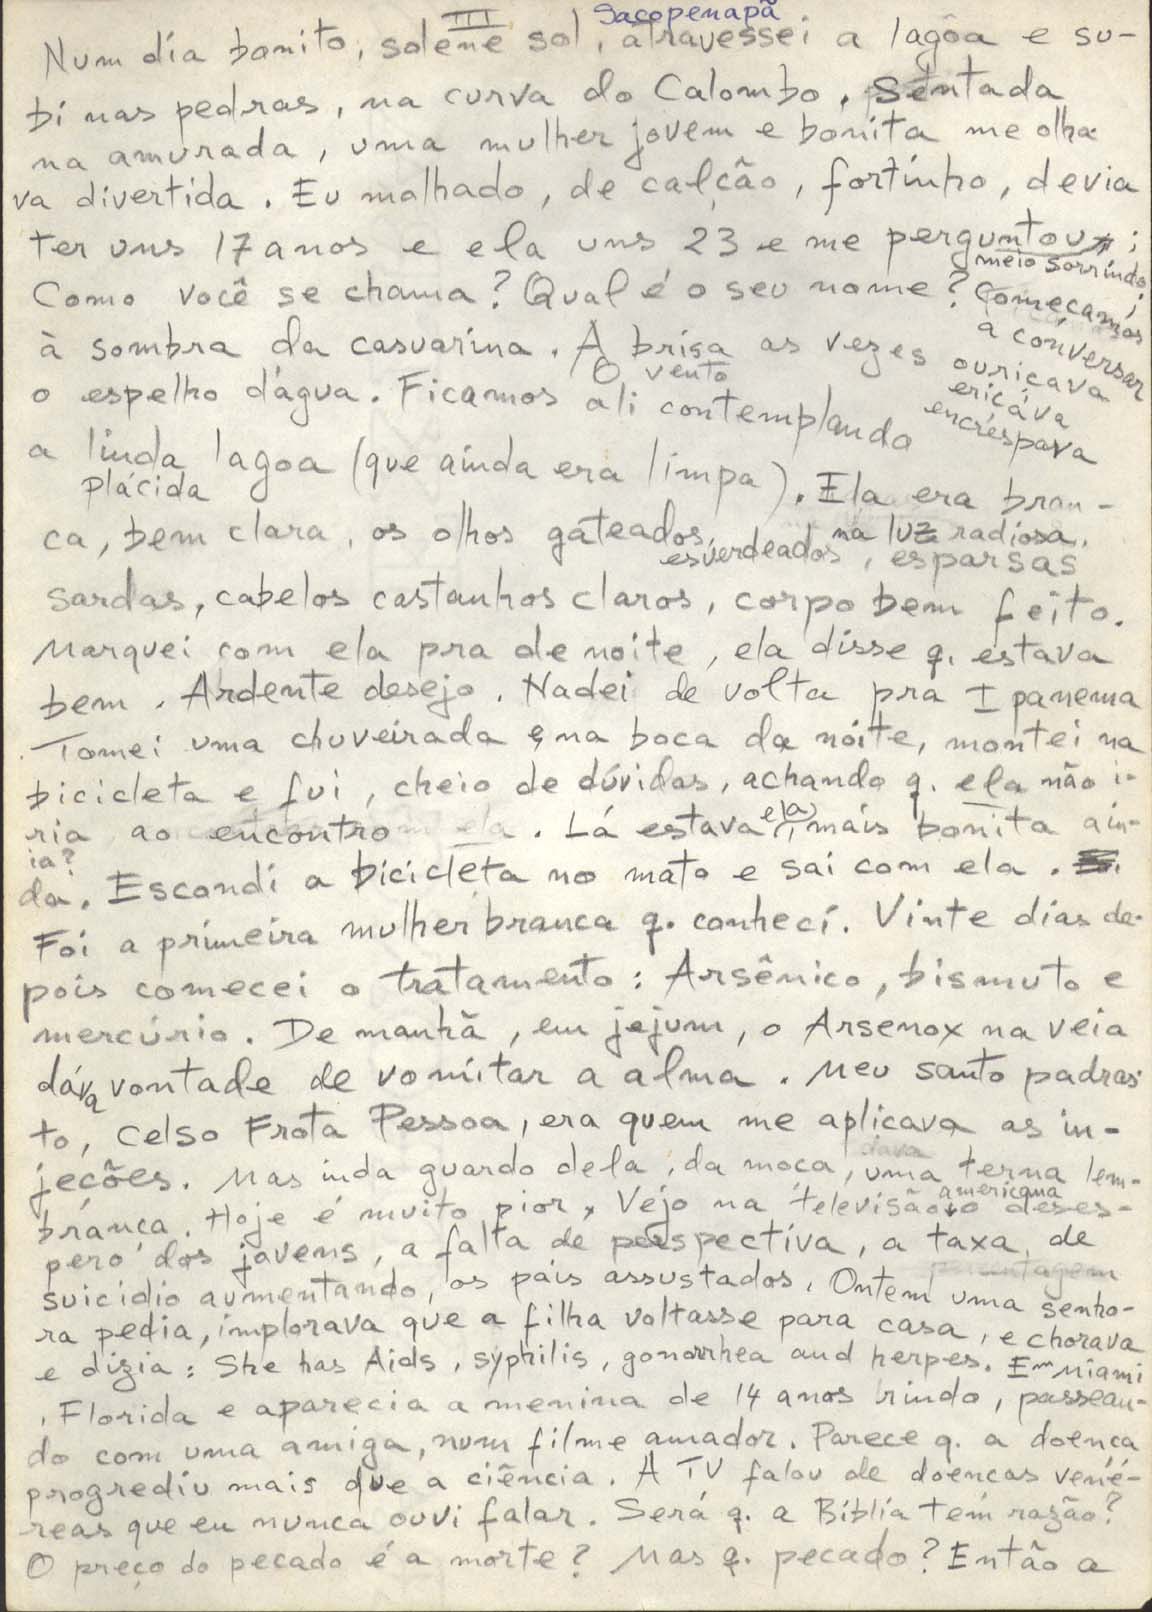 III Sacopenapã
Num dia bonito, solene sol, atravessei a lagôa e su-
bi nas pedras, na curva do Calombo. Sentada
na amurada, uma mulher jovem e bonita me olha
va divertida. Eu malhado, de calção, fortinho, devia
ter uns 17 anos e ela uns 23 e me perguntou ;
meio sorrindo;
Como você se chama? Qual é o seu nome? Começamos
a conversar
à sombra da casuarina. A brisa as vezes ouriçava
O vento eriçáva
o espelho d'água. Ficamos ali contemplando encréspava
a linda lagoa (que ainda era limpa). Ela era bran-
plácida
ca, bem clara, os olhos gateados, na luz radiosa,
esverdeados, esparsas
sardas, cabelos castanhos claros, corpo bem feito.
Marquei com ela pra de noite, ela disse q. estava
bem. Ardente desejo. Nadei de volta pra Ipanema
Tomei uma chuveirada e, na boca da noite, montei na
bicicleta e fui, cheio de dúvidas, achando q. ela não i-
ria ao encontro. Lá estava ela, mais bonita ain-
ia?
da. Escondi a bicicleta no mato e sai com ela.
Foi a primeira mulher branca q. conheci. Vinte dias de-
pois comecei o tratamento: Arsênico, bismuto e
mercúrio. De manhã, em jejum, o Arsenox na veia
dáva vontade de vomitar a alma. Meu santo padras-
to, Celso Frota Pessoa, era quem me aplicava as in-
dava
jeções. Mas inda guardo dela, da moça, uma terna lem-
brança. Hoje é muito pior, Vejo na televisão americana o deses-
pero dos jovens, a falta de perspectiva, a taxa de
porcentagem
suicidio aumentando, os pais assustados. Ontem uma senho-
ra pedia, implorava que a filha voltasse para casa, e chorava
e dizia: She has Aids, syphilis, gonorrhea and herpes. Em Miami
, Florida e aparecia a menina de 14 anos rindo, passean-
do com uma amiga, num filme amador. Parece q. a doença
progrediu mais que a ciência. A TV falou de doenças vené-
reas que eu nunca ouvi falar. Será q. a Bíblia tem razão?
O preço do pecado é a morte? Mas q. pecado? Então a